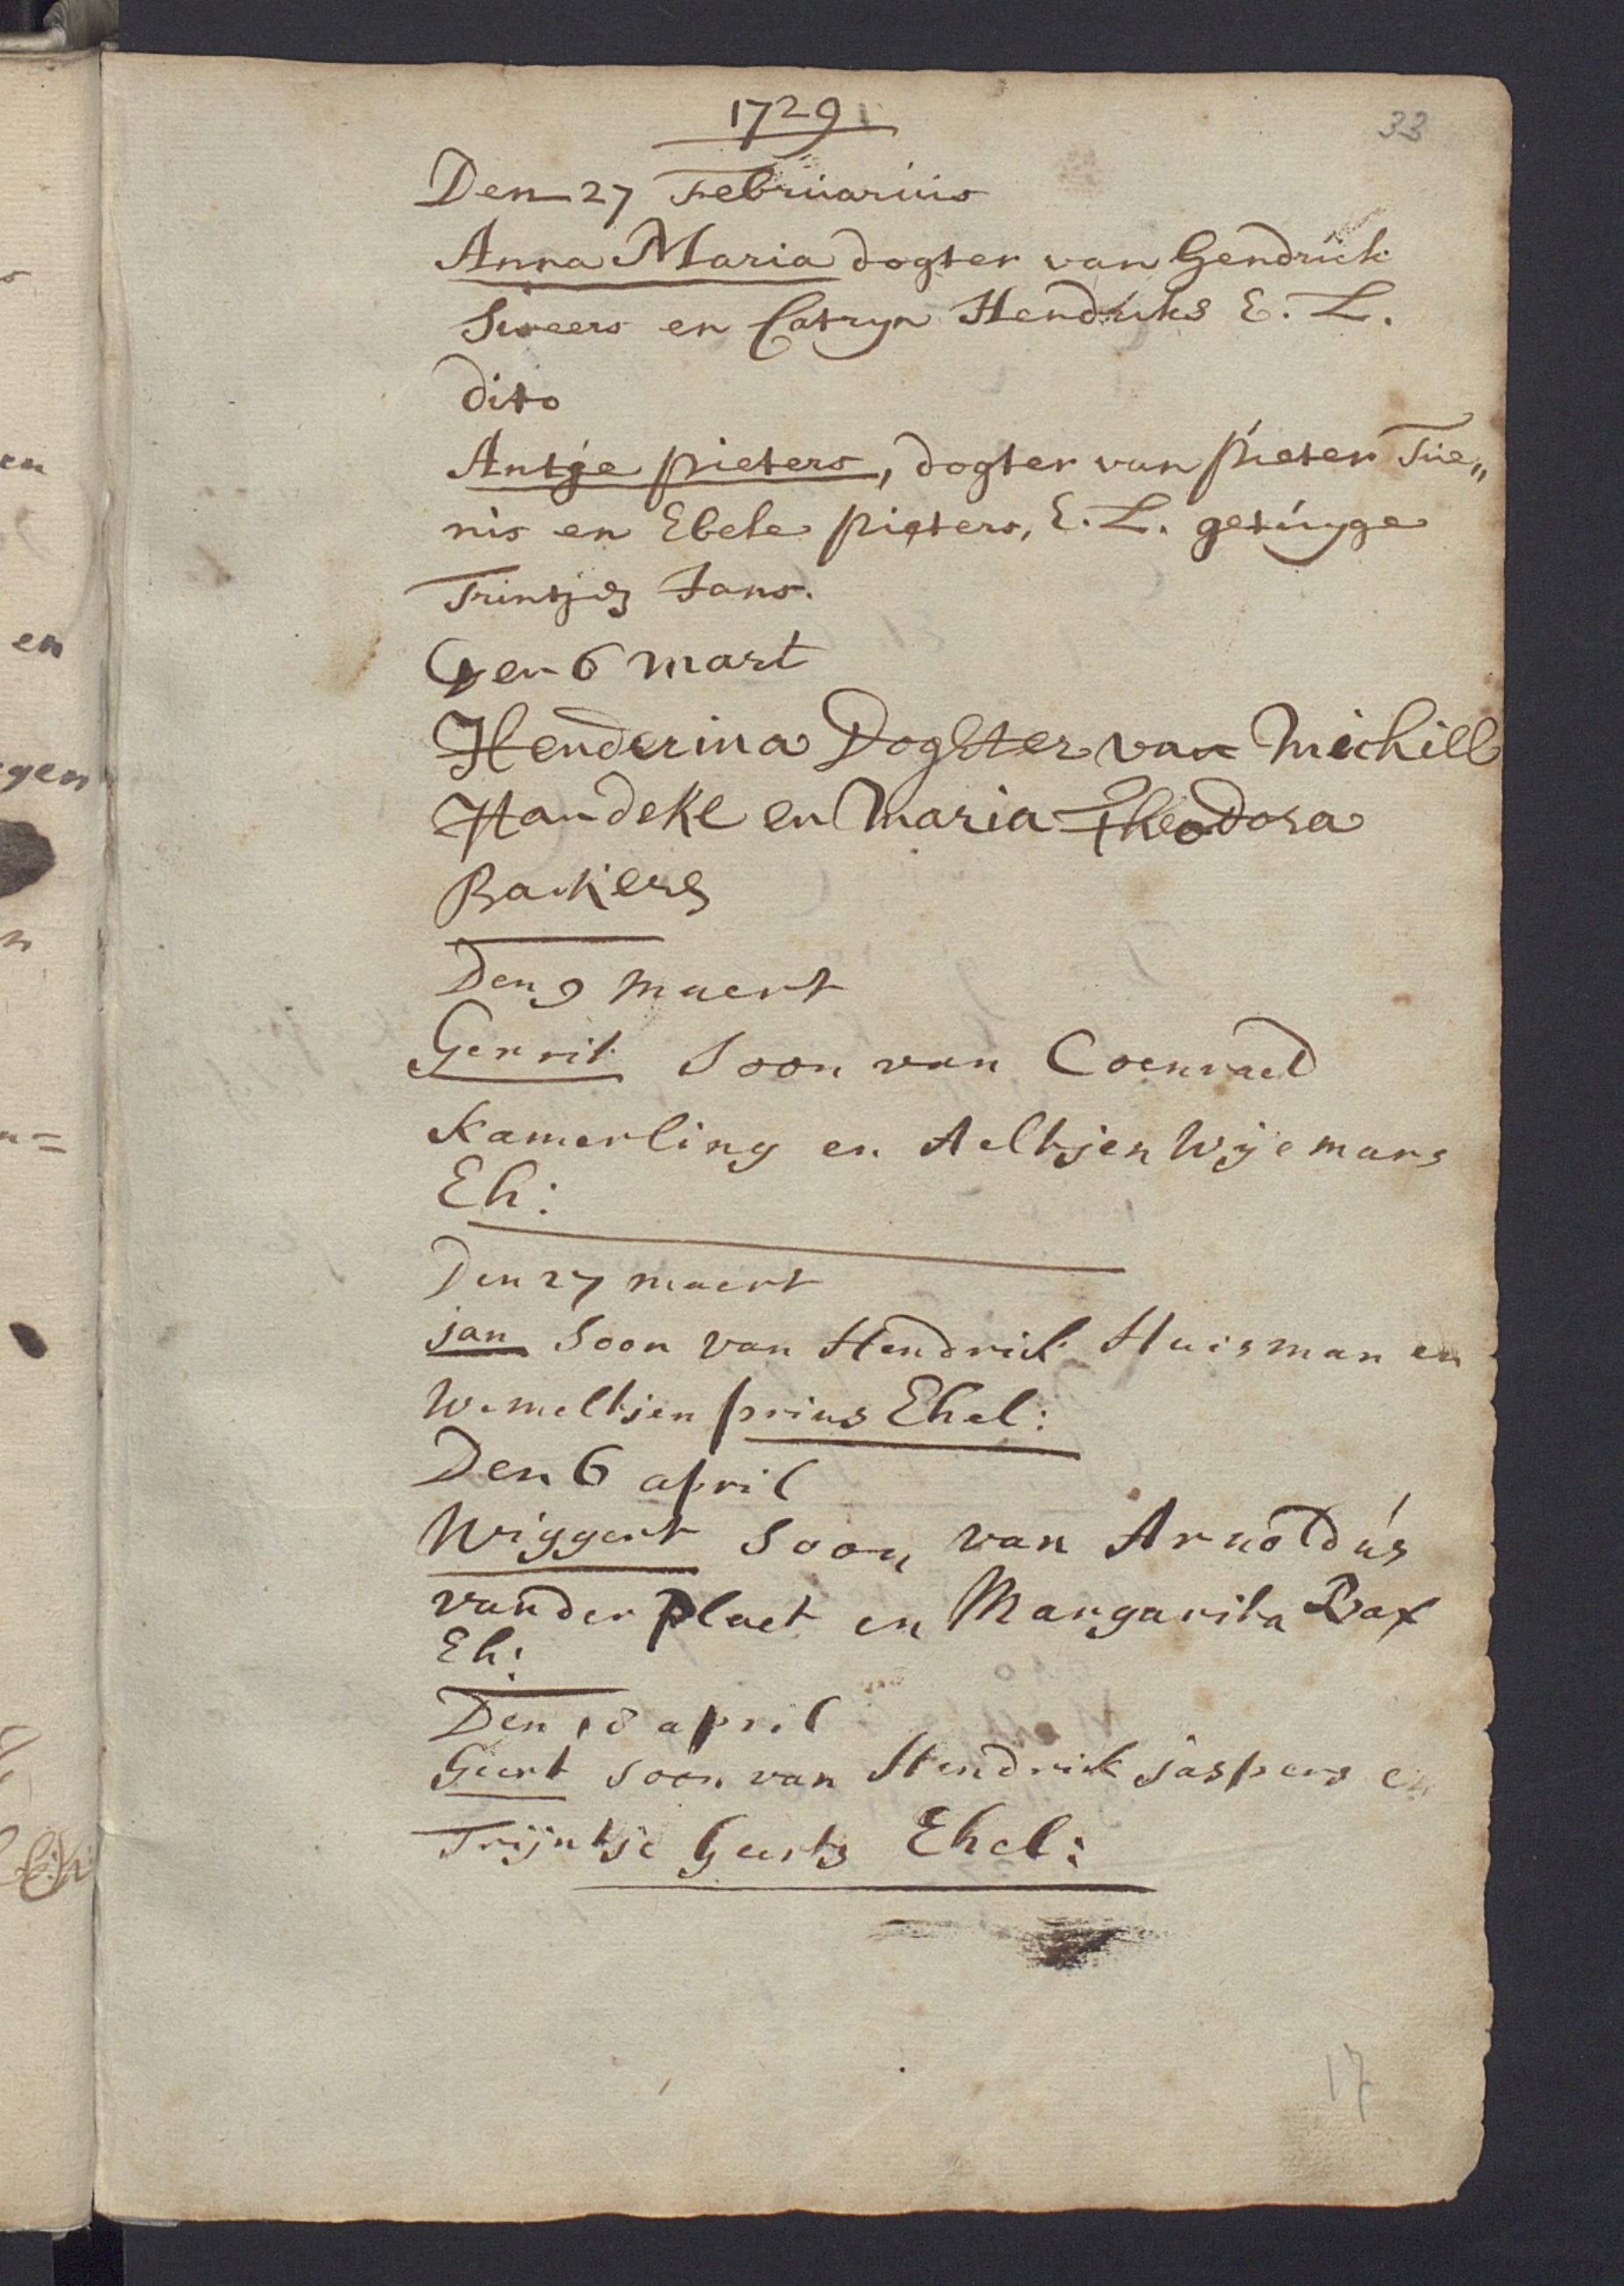 1729
33
Den 27 Februarius
Anna Maria dogter van Hendrick
Sweers en Catryn Hendriks E. L.
dito
Antje pieters, dogter van pieter Tue„
nis en Ebele pieters, E. L. getuyge
Trintje Jans.
Den 6 Mart
Henderina Doghter van Michill
Handeke en Maria Theodora
Backers
Den 9 Maert
Gerrit Soon van Coenraed
Kamerling en Aeltjen Wijemans
Eh:
Den 27 maert
jan Soon van Hendrick Huisman en
Wemeltjen prins Ehel:
Den 6 april
Wiggert Soon van Arnoldus
vander Plaet en Margarita Bax
Eh:
Den 18 april
Geert soon van Hendrick jaspers en
Trijntje Geerts Ehel:
17